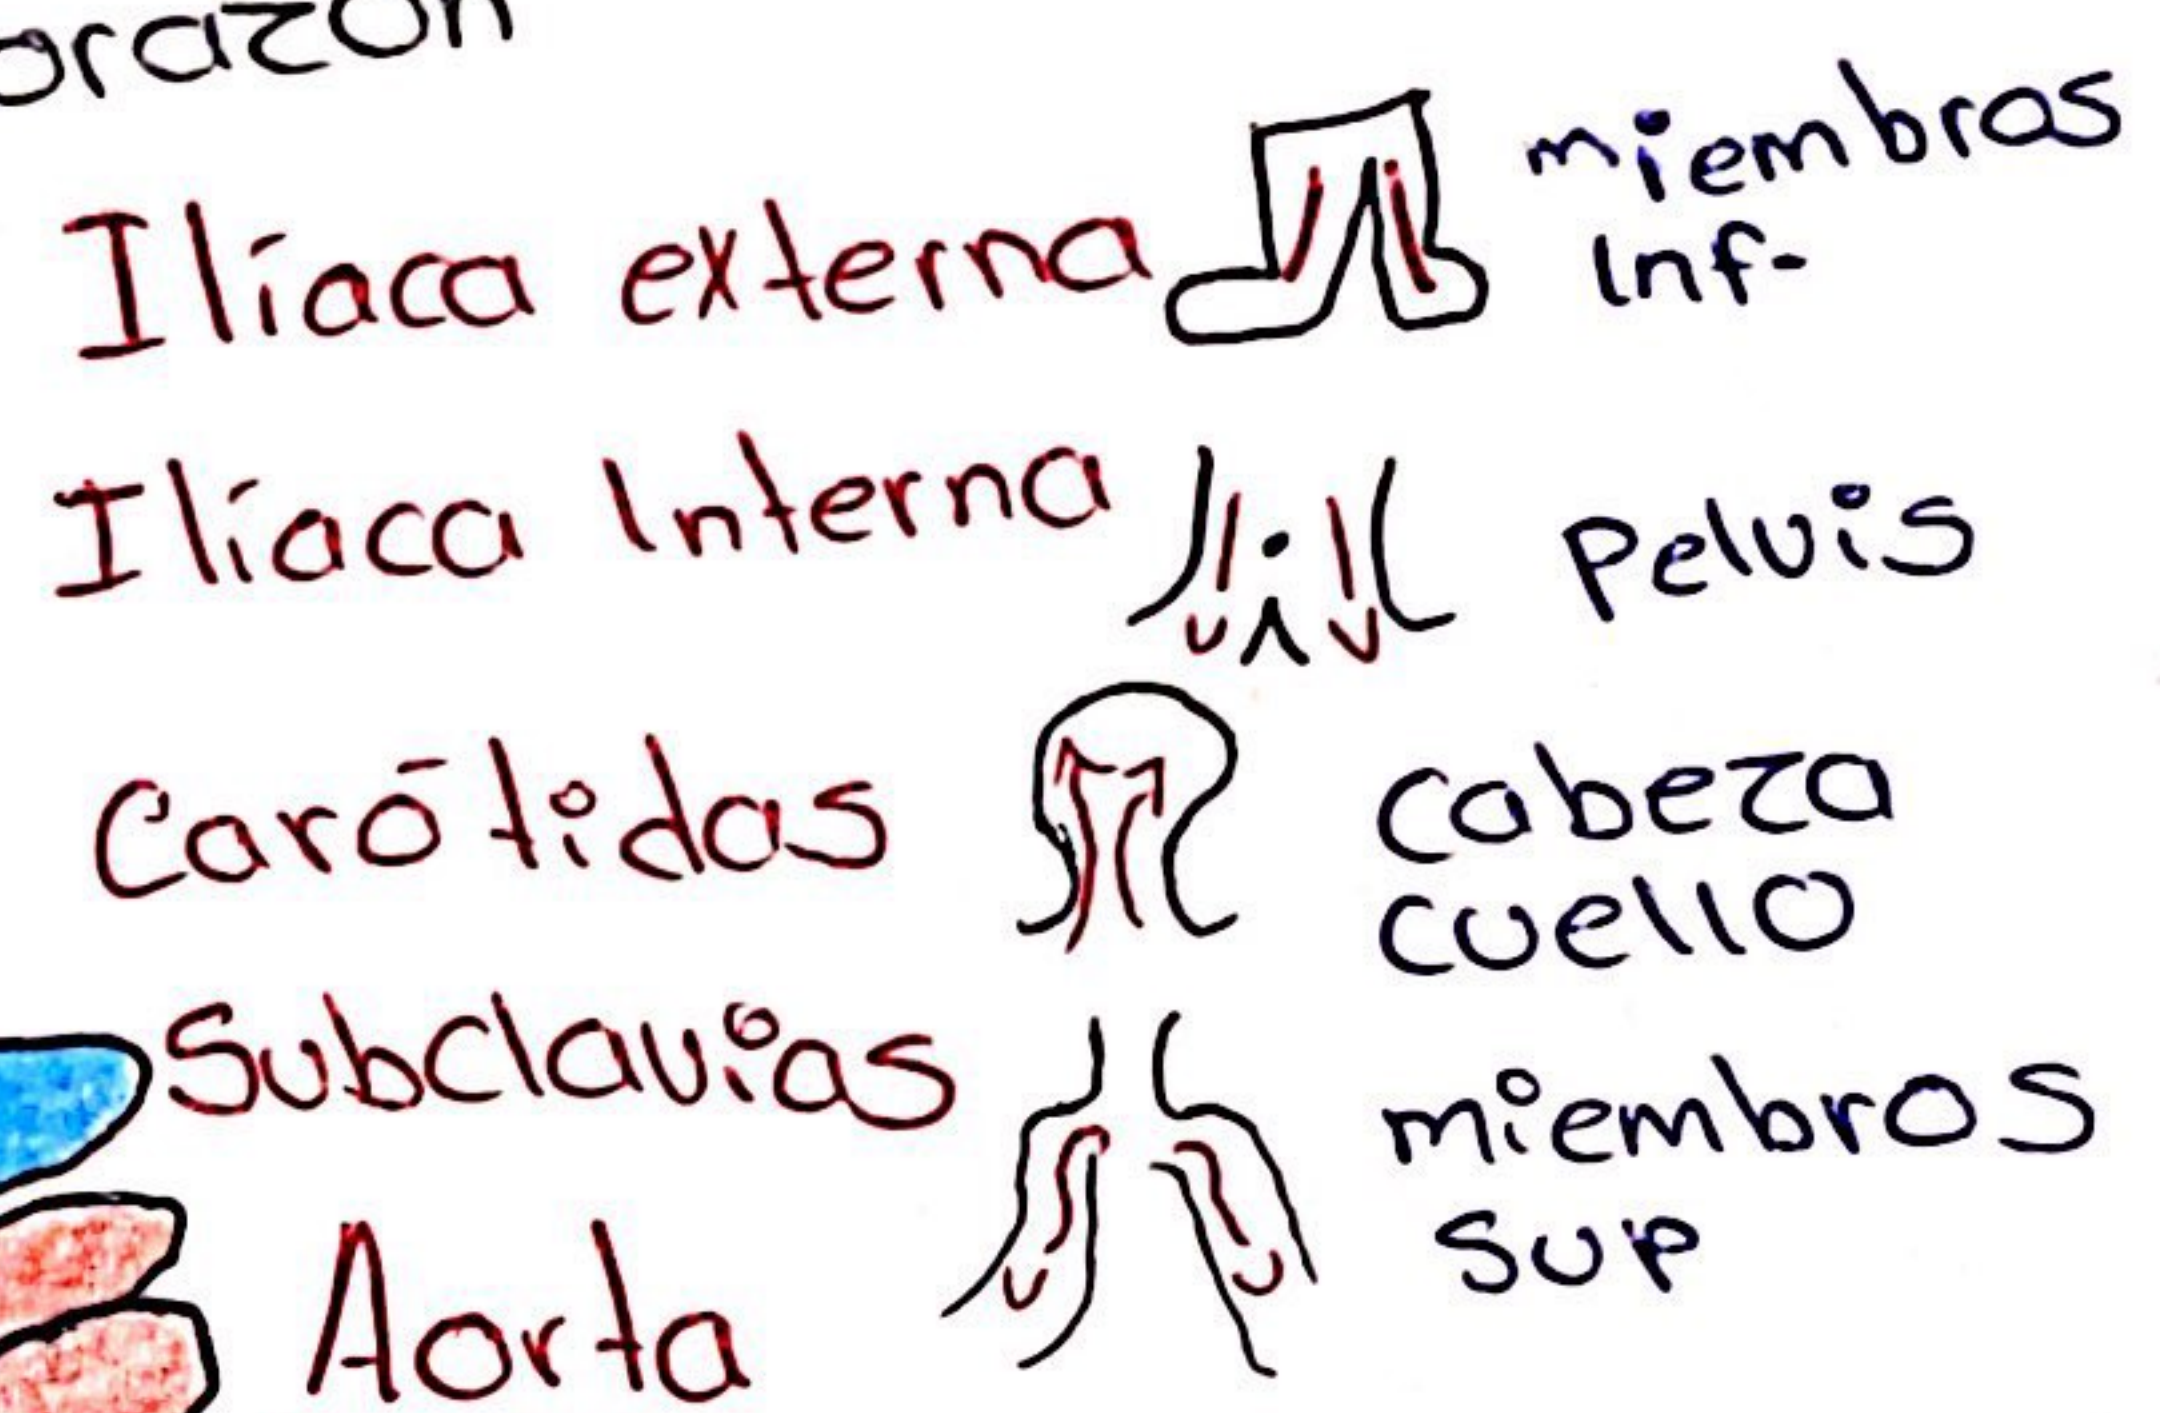 orazón
Ilíaca externa
miembros
Inf-
Ilíaca Interna
Pelvis
Carótidas
cabeza
cuello
Subclavias
miembros
sup
Aorta